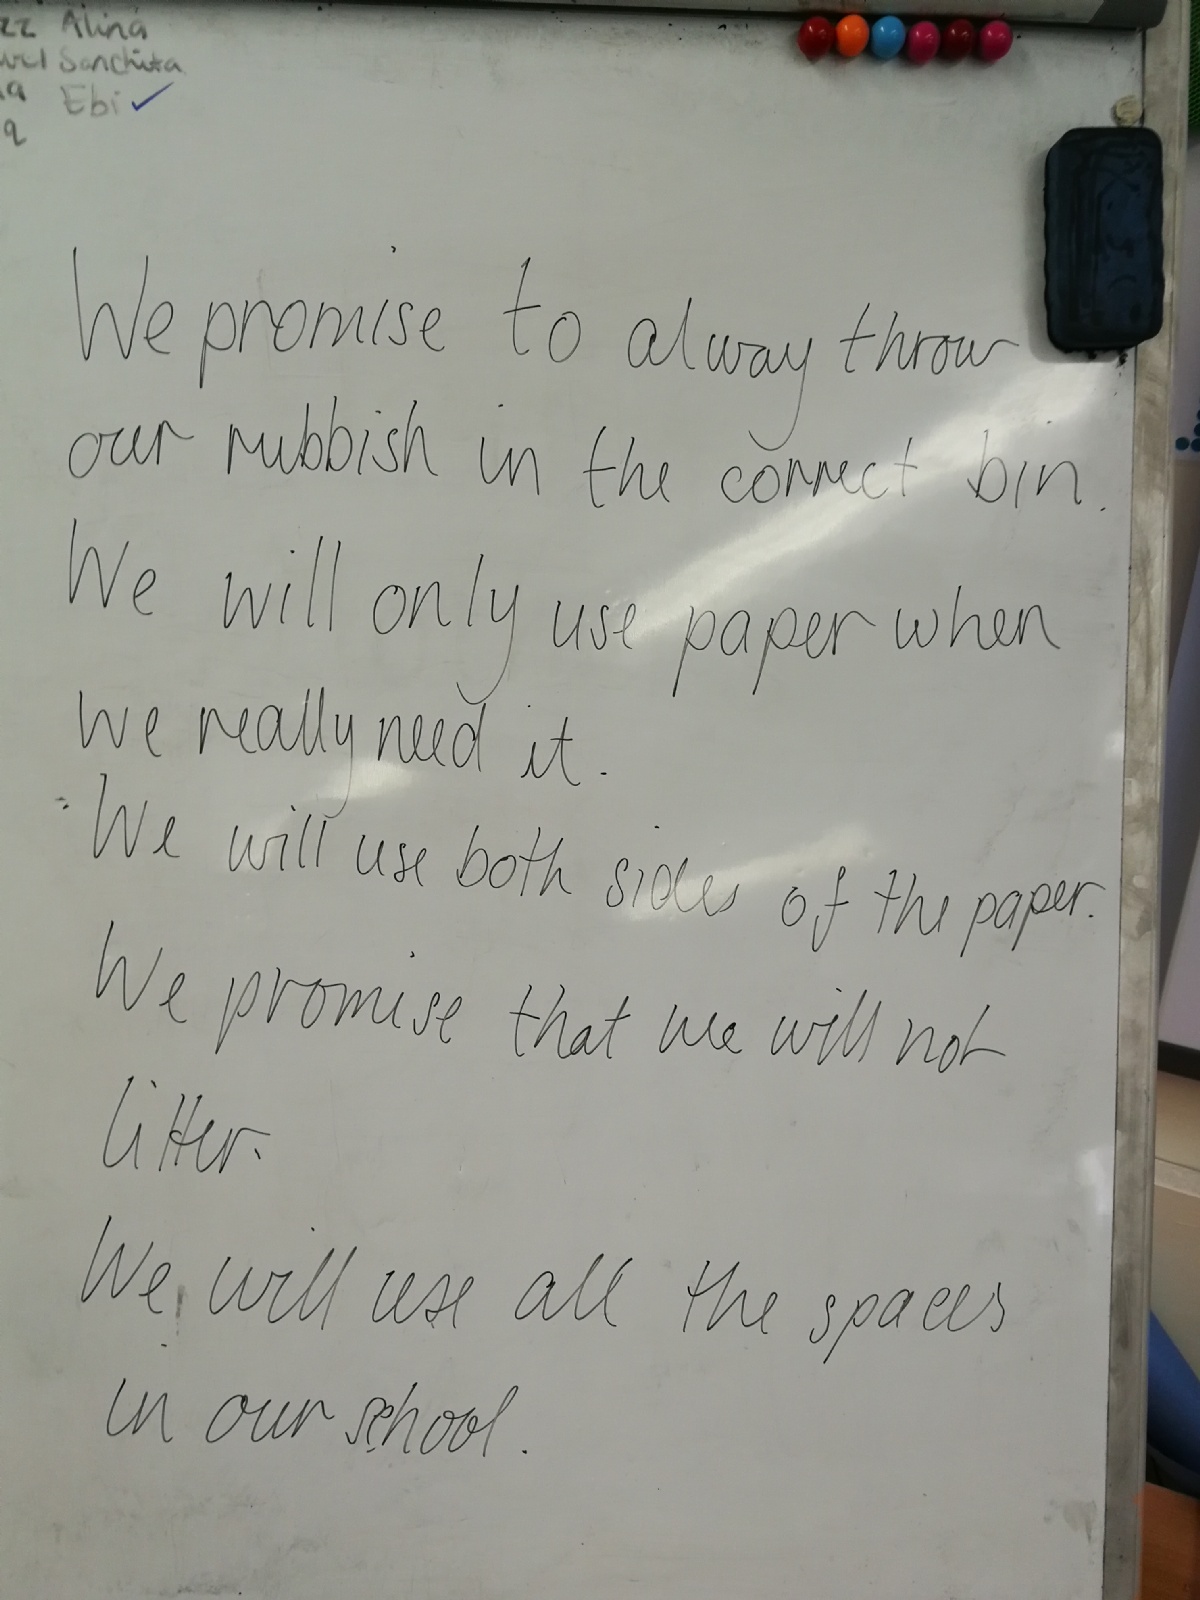 zz Alina
Sanchita
Ebi ✓
We promise to alway throw
our rubbish in the correct bin.
We will only use paper when
we really need it.
We will use both sides of the paper.
We promise that we will not
litter.
We will use all the spaces
in our school.